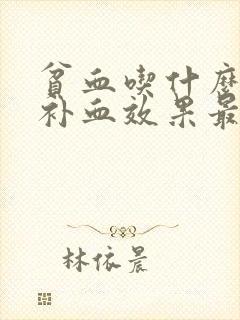 贫血喫什麽
补血效果最
林依晨